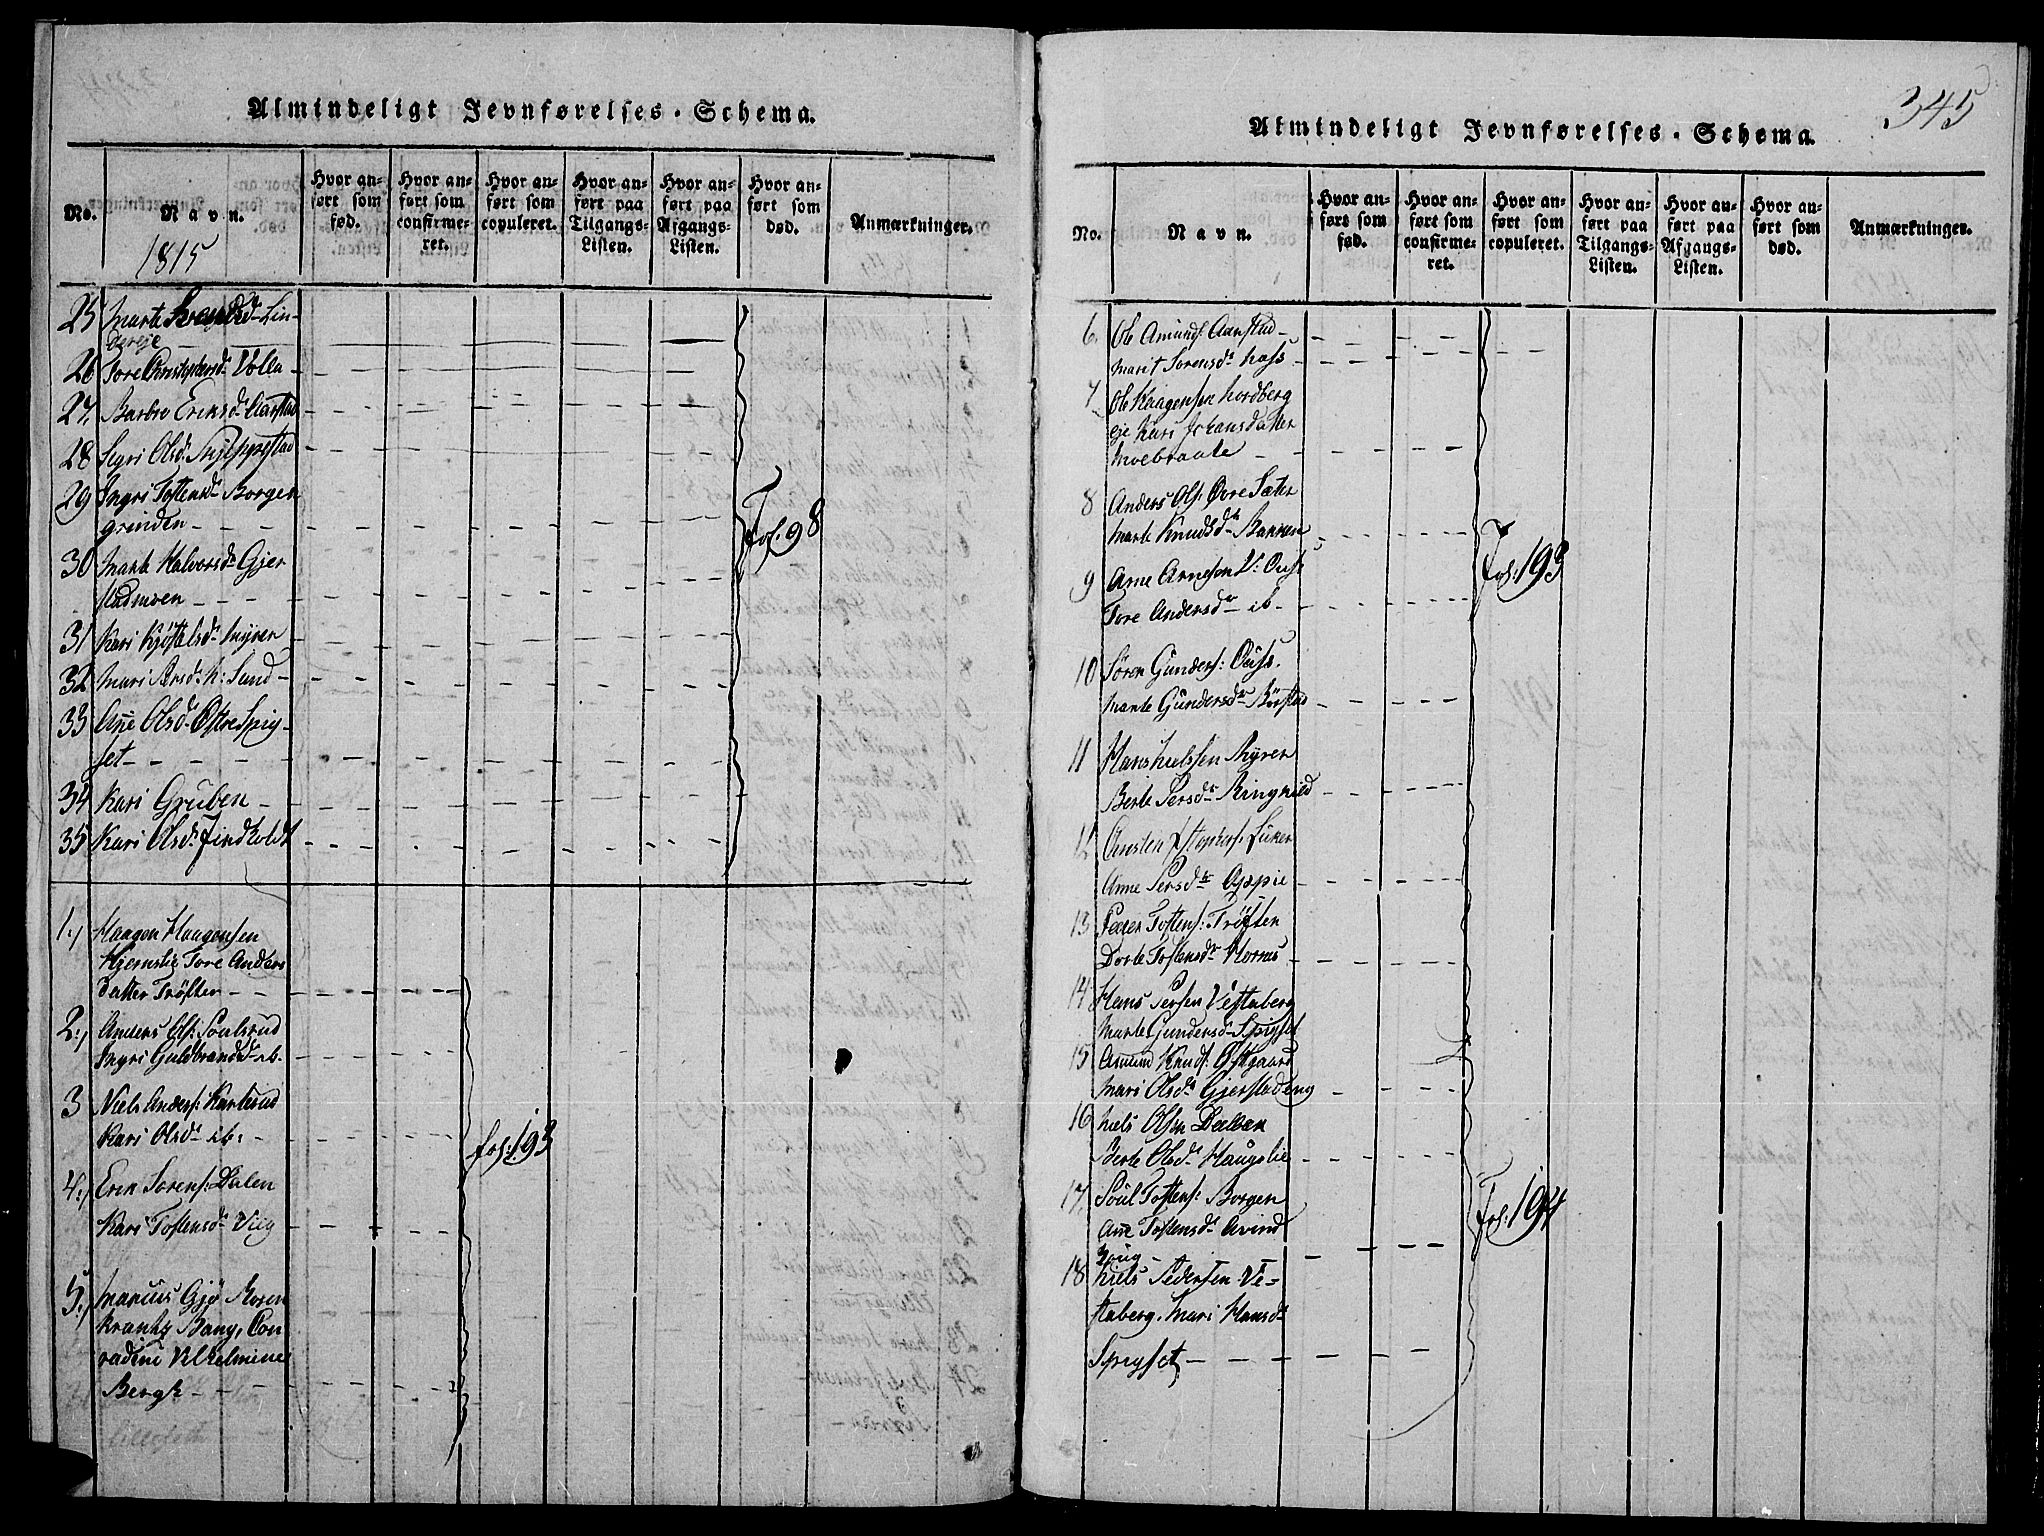 Almindeligt Jevnførelses-Schema.
No.
Navn.
Hvor anført som fød.
Hvor anført som confirmeret.
Hvor anført som copuleret.
Hvor anført paa Tilgangs-Listen.
Hvor anført paa Afgangs-Listen.
Hvor anført som død.
Anmærkninger.
1815
25 Marte
26 Tore Christophersdr Volla
27 Barbro Eriksdr Aarstad
28 Sigri Olsdr
29 Ingri Tostensdr Borgen
grinden
Fol. 98
30 Marte Halvorsdr Gjer
stadmoen
31 Kari Kjøstelsdr Myren
32 Mari Persdr N: Sund
33 Añe Olsdr Østre Spig-
set
34 Kari Gruben
35 Kari Olsdr Findholdt
1.) Haagen Haagensen
Hjernstie Tore Anders
datter Trøften
2.) Anders Ols: Poulsrud
Ingri Guldbrandsdr ib.
3 Niels Anders: Karlsrud
Kari Olsdr ib:
fol: 193
4.) Erik Sørens: Dalen
Kari Tostensdr Viig
5.) Marcus Gjø Rosen
krantz Bang, Con
radine Vilhelmine
Bergh
345
Almindeligt Jevnførelses-Schema.
No.
Navn.
Hvor anført som fød.
Hvor anført som confirmeret.
Hvor anført som copuleret.
Hvor anført paa Tilgangs-Listen.
Hvor anført paa Afgangs-Listen.
Hvor anført som død.
Anmærkninger.
6. Ole Amunds: Aarstad
Marit Sørensdr Næss
7 Ole Haagensen Nordberg
eje Kari Johansdatter
Moebraate
8 Anders Ols: Øvre Sæter
Marte Knudsdr Bakken
Fol: 193
9 Arne Arnesen V: Ouss
Tore Andersdr ib.
10 Søren Gunders: Ouss.
Marte Gundersdr Børstad
11 Hans Nielssen Myren
Berte Persdr Ringnild
12
Anne Persdr Opper
13 Peder Tostens: Trøften
Dorte Tostensdr Horness
14 Hans Persen Vestaberg
Marte Gundersdr Spigset
15 Amund Knuds: Østgaard
Mari Olsdr Gjerstadeng
16 Niels Olsen Dalbak
Berte Olsdr Haugslie
17 Poul Tostens: Borgen
Fol: 194
Añe Tostensdr Avind
houg
18 Niels Pedersen Ve-
staberg. Mari Hansdr
Spigset